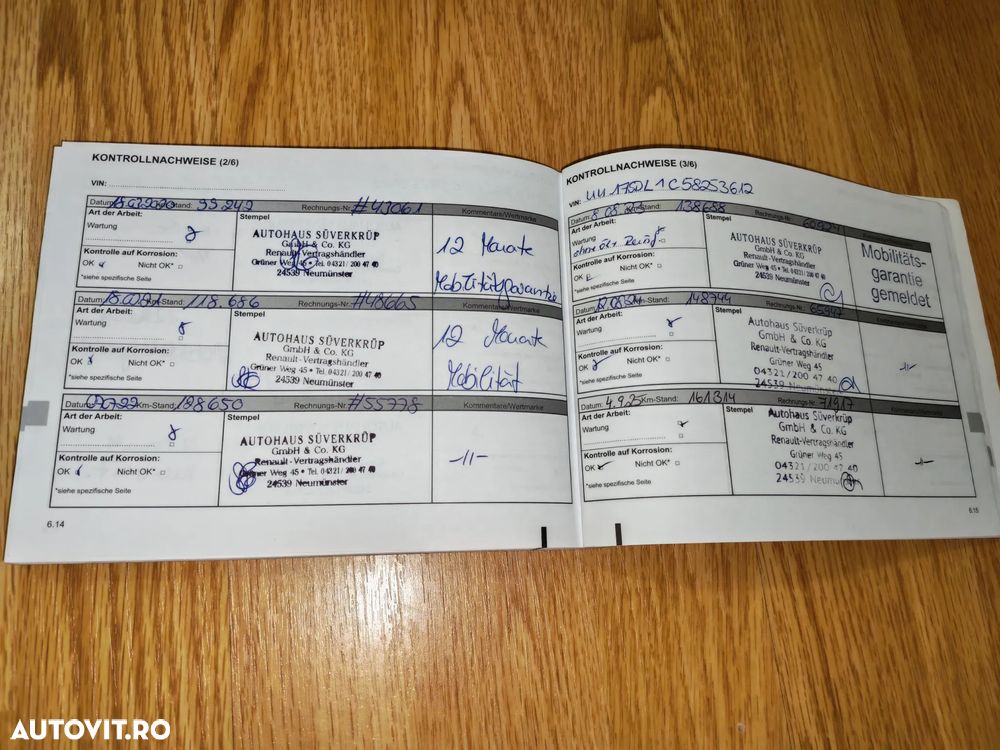 KONTROLLNACHWEISE (2/6)
VIN:
Datum: Km-Stand: 99.242 Rechnungs-Nr. #43061 Kommentare/Wertmarke
Art der Arbeit: Stempel
Wartung
AUTOHAUS SÜVERKRÜP
GmbH & Co. KG
Renault-Vertragshändler
Grüner Weg 45 • Tel. 04321 / 200 47 40
24539 Neumünster
12 Monate
Mobilitätsgarantie
Kontrolle auf Korrosion:
OK Nicht OK*
*siehe spezifische Seite
Datum: Km-Stand: 118.686 Rechnungs-Nr. #48665 Kommentare/Wertmarke
Art der Arbeit: Stempel
Wartung
AUTOHAUS SÜVERKRÜP
GmbH & Co. KG
Renault-Vertragshändler
Grüner Weg 45 • Tel. 04321 / 200 47 40
24539 Neumünster
12 Monate
Mobilität
Kontrolle auf Korrosion:
OK Nicht OK*
*siehe spezifische Seite
Datum: Km-Stand: 128650 Rechnungs-Nr. #55778 Kommentare/Wertmarke
Art der Arbeit: Stempel
Wartung
AUTOHAUS SÜVERKRÜP
GmbH & Co. KG
Renault-Vertragshändler
Grüner Weg 45 • Tel. 04321 / 200 47 40
24539 Neumünster
-11-
Kontrolle auf Korrosion:
OK Nicht OK*
*siehe spezifische Seite
6.14
KONTROLLNACHWEISE (3/6)
VIN:
Datum: Km-Stand: 138688 Rechnungs-Nr.
Art der Arbeit: Stempel
Wartung
AUTOHAUS SÜVERKRÜP
GmbH & Co. KG
Renault-Vertragshändler
Grüner Weg 45 • Tel. 04321 / 200 47 40
24539 Neumünster
Mobilitäts-
garantie
gemeldet
Kontrolle auf Korrosion:
OK Nicht OK*
*siehe spezifische Seite
Datum: Km-Stand: 148744 Rechnungs-Nr. 65947
Art der Arbeit:
Wartung
Autohaus Süverkrüp
GmbH & Co. KG
Renault-Vertragshändler
Grüner Weg 45
04321/200 47 40
24539 Neumünster
-11-
Kontrolle auf Korrosion:
OK Nicht OK*
*siehe spezifische Seite
Datum: 4.9.25 Km-Stand: 161314 Rechnungs-Nr. 71917
Art der Arbeit: Stempel
Wartung
Autohaus Süverkrüp
GmbH & Co. KG
Renault-Vertragshändler
Grüner Weg 45
04321/200 47 40
24539
-11-
Kontrolle auf Korrosion:
OK Nicht OK*
*siehe spezifische Seite
6.15
AUTOVIT.RO